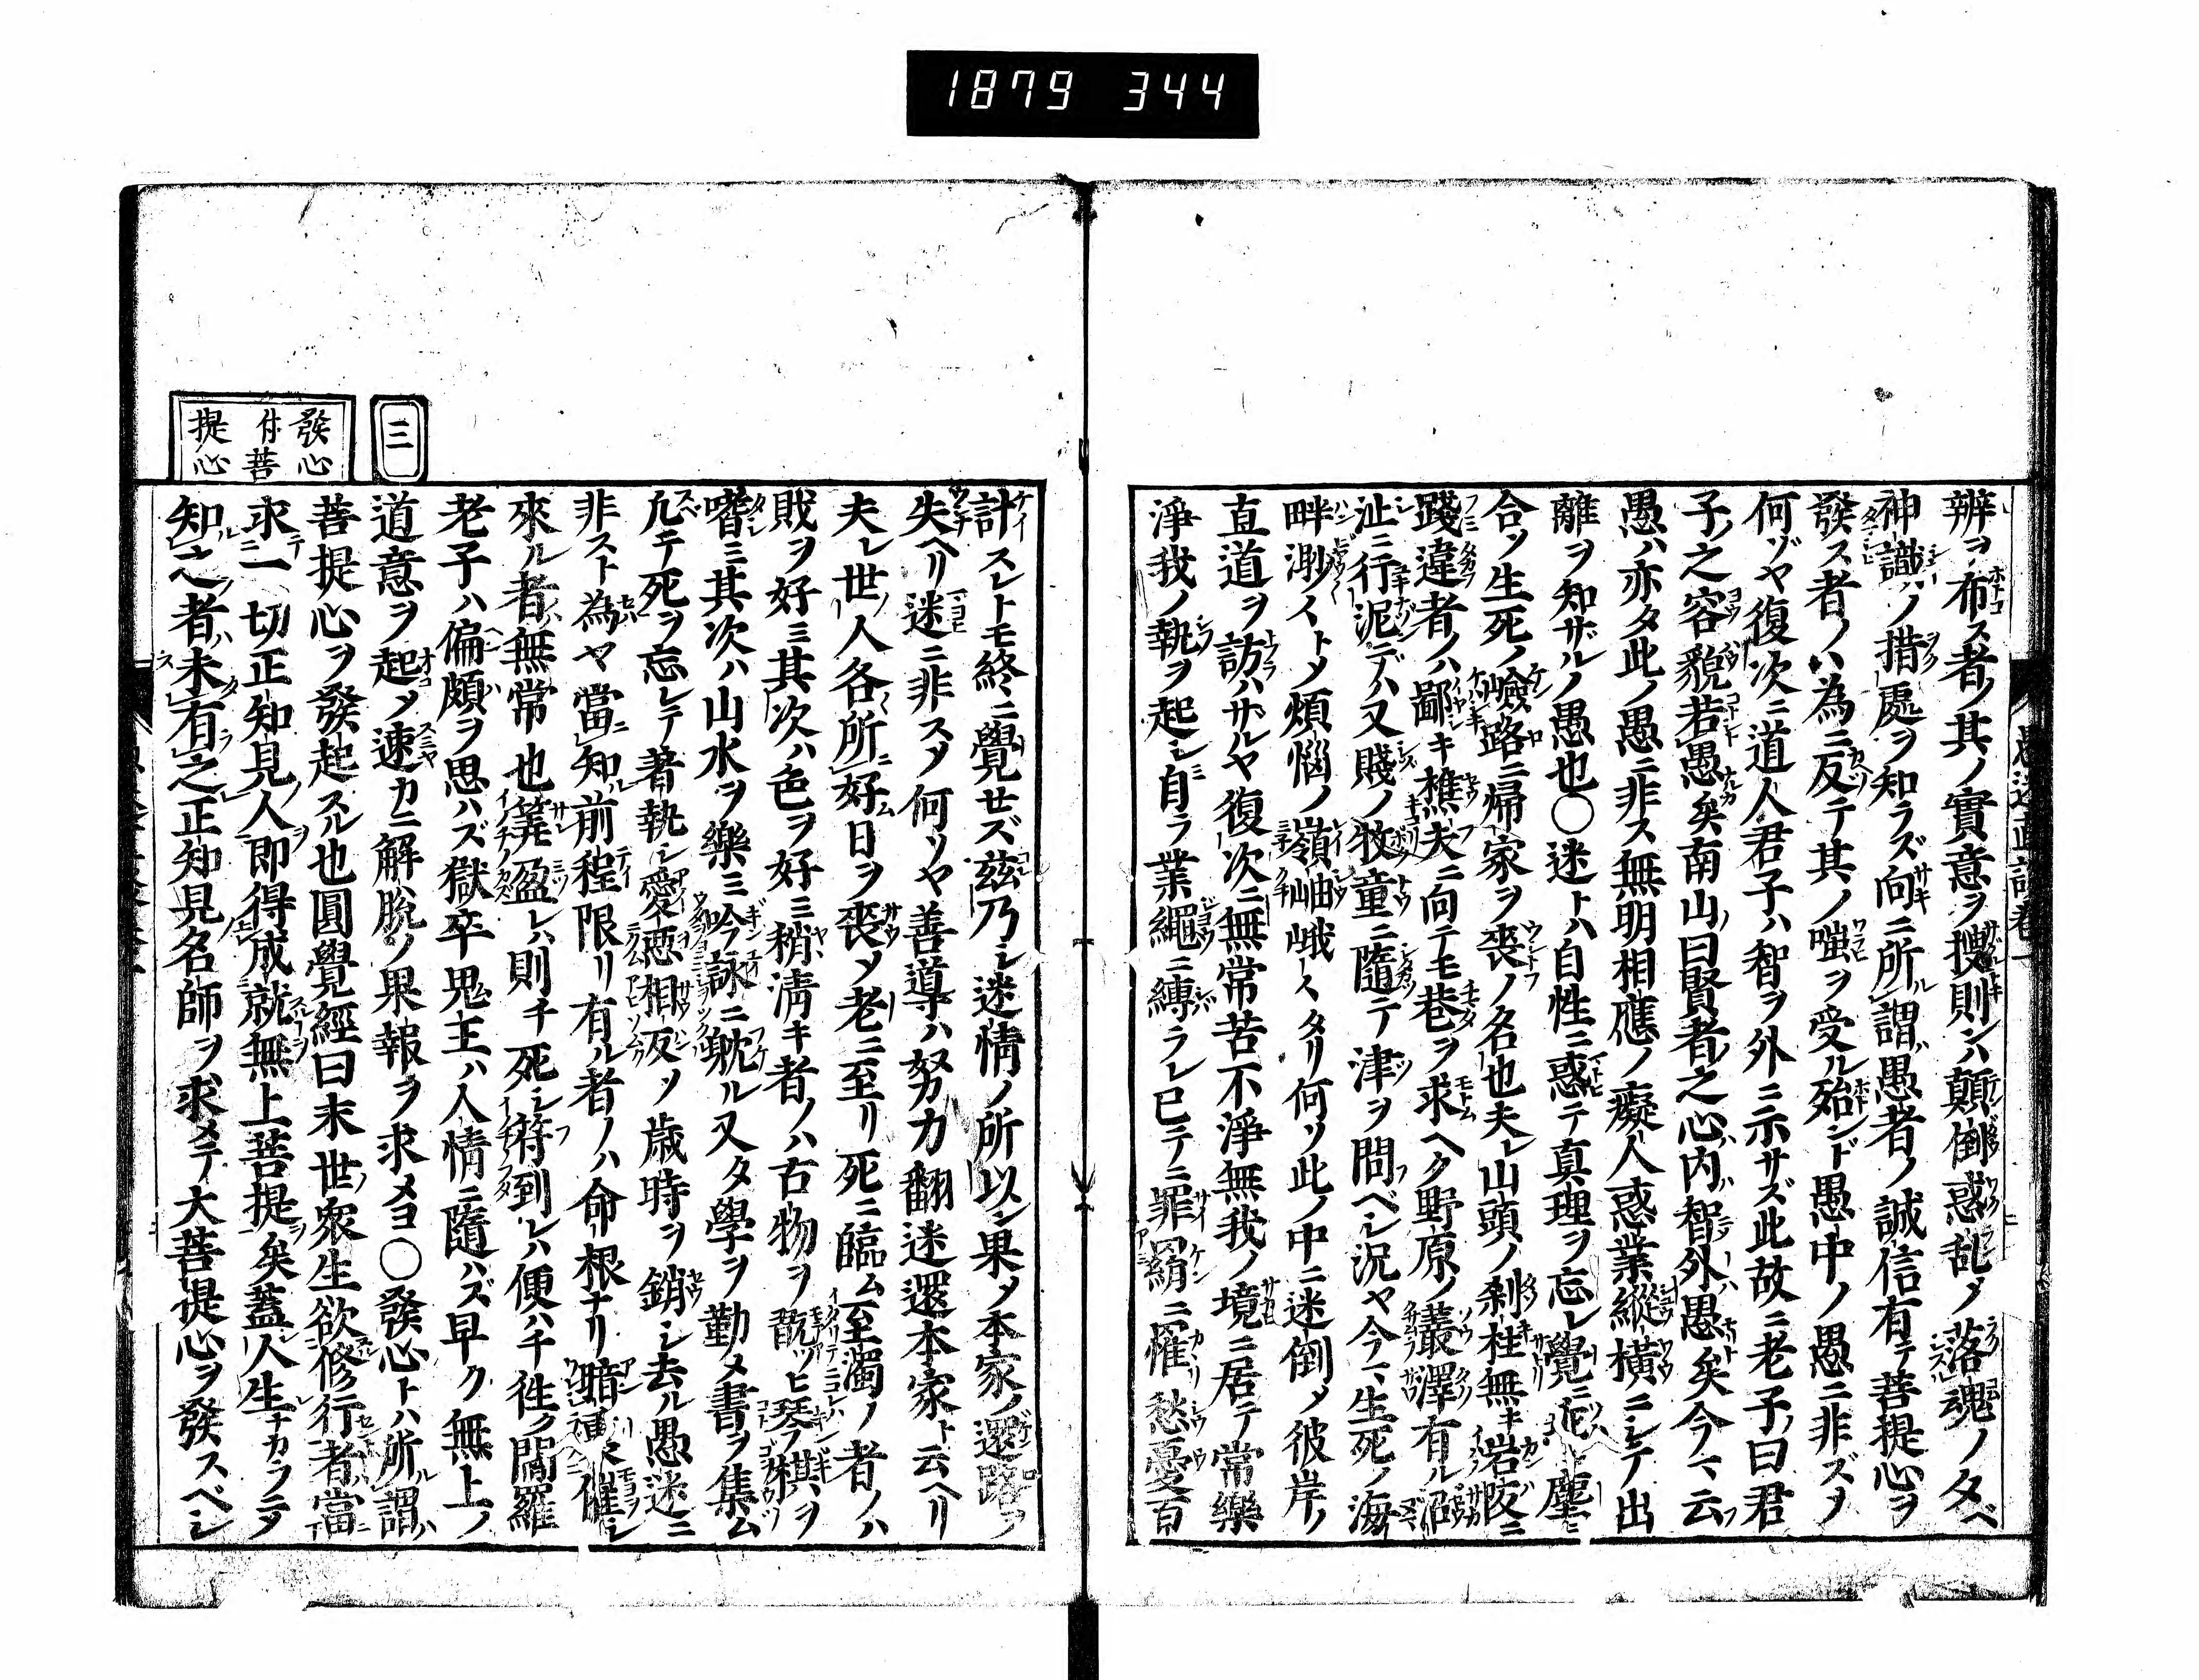 1879 344
辨ヲ布ス者ノ其ノ實意ヲ搜則ンハ顛倒惑乱ノ落魂ノタベ
神識ノ措處ヲ知ラズ向ニ所謂愚者ノ誠信有テ菩提心ヲ
發ス者ノハ為ニ反テ其ノ嗤ヲ受ル殆ンド愚中ノ愚ニ非ズヤ
何ゾヤ復次ニ道人君子ハ智ヲ外ニ示サズ此故ニ老子曰君
子之容貌若愚矣南山曰賢者之心内智外愚矣今マ云フ
愚ハ亦タ此ノ愚ニ非ス無明相應ノ癡人惑業縱横ニシテ出
離ヲ知ザルノ愚也〇迷トハ自性ニ惑テ真理ヲ忘レ覺ニ 塵ニ
合ツ生死ノ嶮路ニ帰家ヲ喪ノ名也夫レ山頭ノ刹柱無キ岩陂ニ
踐違者ノハ鄙キ樵夫ニ向テモ巷ヲ求ヘク野原ノ叢澤有ル沼
沚ニ行泥デハ又賤ノ牧童ニ隨テ津ヲ問ベシ况ヤ今マ生死ノ海
畔渺イトメ煩惱ノ嶺岫峨〱タリ何ソ此ノ中ニ迷倒メ彼岸ノ
直道ヲ訪ハザルヤ復次ニ無常苦不淨無我ノ境ニ居テ常樂
淨我ノ執ヲ起シ自ラ業繩ニ縛ラレ已テニ罪羂ニ罹リ愁憂百
計スレトモ終ニ覺セズ茲乃シ迷情ノ所以ン果メ本家ノ還路ヲ
失ヘリ迷ニ非スメ何ソヤ善導ハ努力翻迷還本家ト云ヘリ
夫レ世人各所好ム日ヲ喪メ老ニ至リ死ニ臨ム至濁ノ者ノハ
財ヲ好ミ其次ハ色ヲ好ミ稍清キ者ノハ古物ヲ翫ヒ琴棋ヲ
嗜ミ其次ハ山水ヲ樂ミ吟詠ニ躭ル又タ學ヲ勤メ書ヲ集ム
凢テ死ヲ忘レテ著執シ愛惡相返ソ歳時ヲ銷シ去ル愚迷ニ
非スト為ヤ當知前程限リ有ル者ノハ命根ナリ暗 催シ
來ル者ハ無常也筭盈レハ則チ死シ符到レハ便ハチ徃ク閻羅
老子ハ偏頗ヲ思ハズ獄卒鬼王ハ人情ニ隨ハズ早ク無上ノ
道意ヲ起メ速カニ解脱ノ果報ヲ求メヨ〇發心トハ所謂ハ
菩提心ヲ發起スル也圓覺經曰末世衆生欲修行者當
求一切正知見人即得成就無上菩提矣蓋人生ナカラニメ
知之者ハ未有之正知見名師ヲ求メテ大菩提心ヲ發スベシ
三
發心
付菩
提心